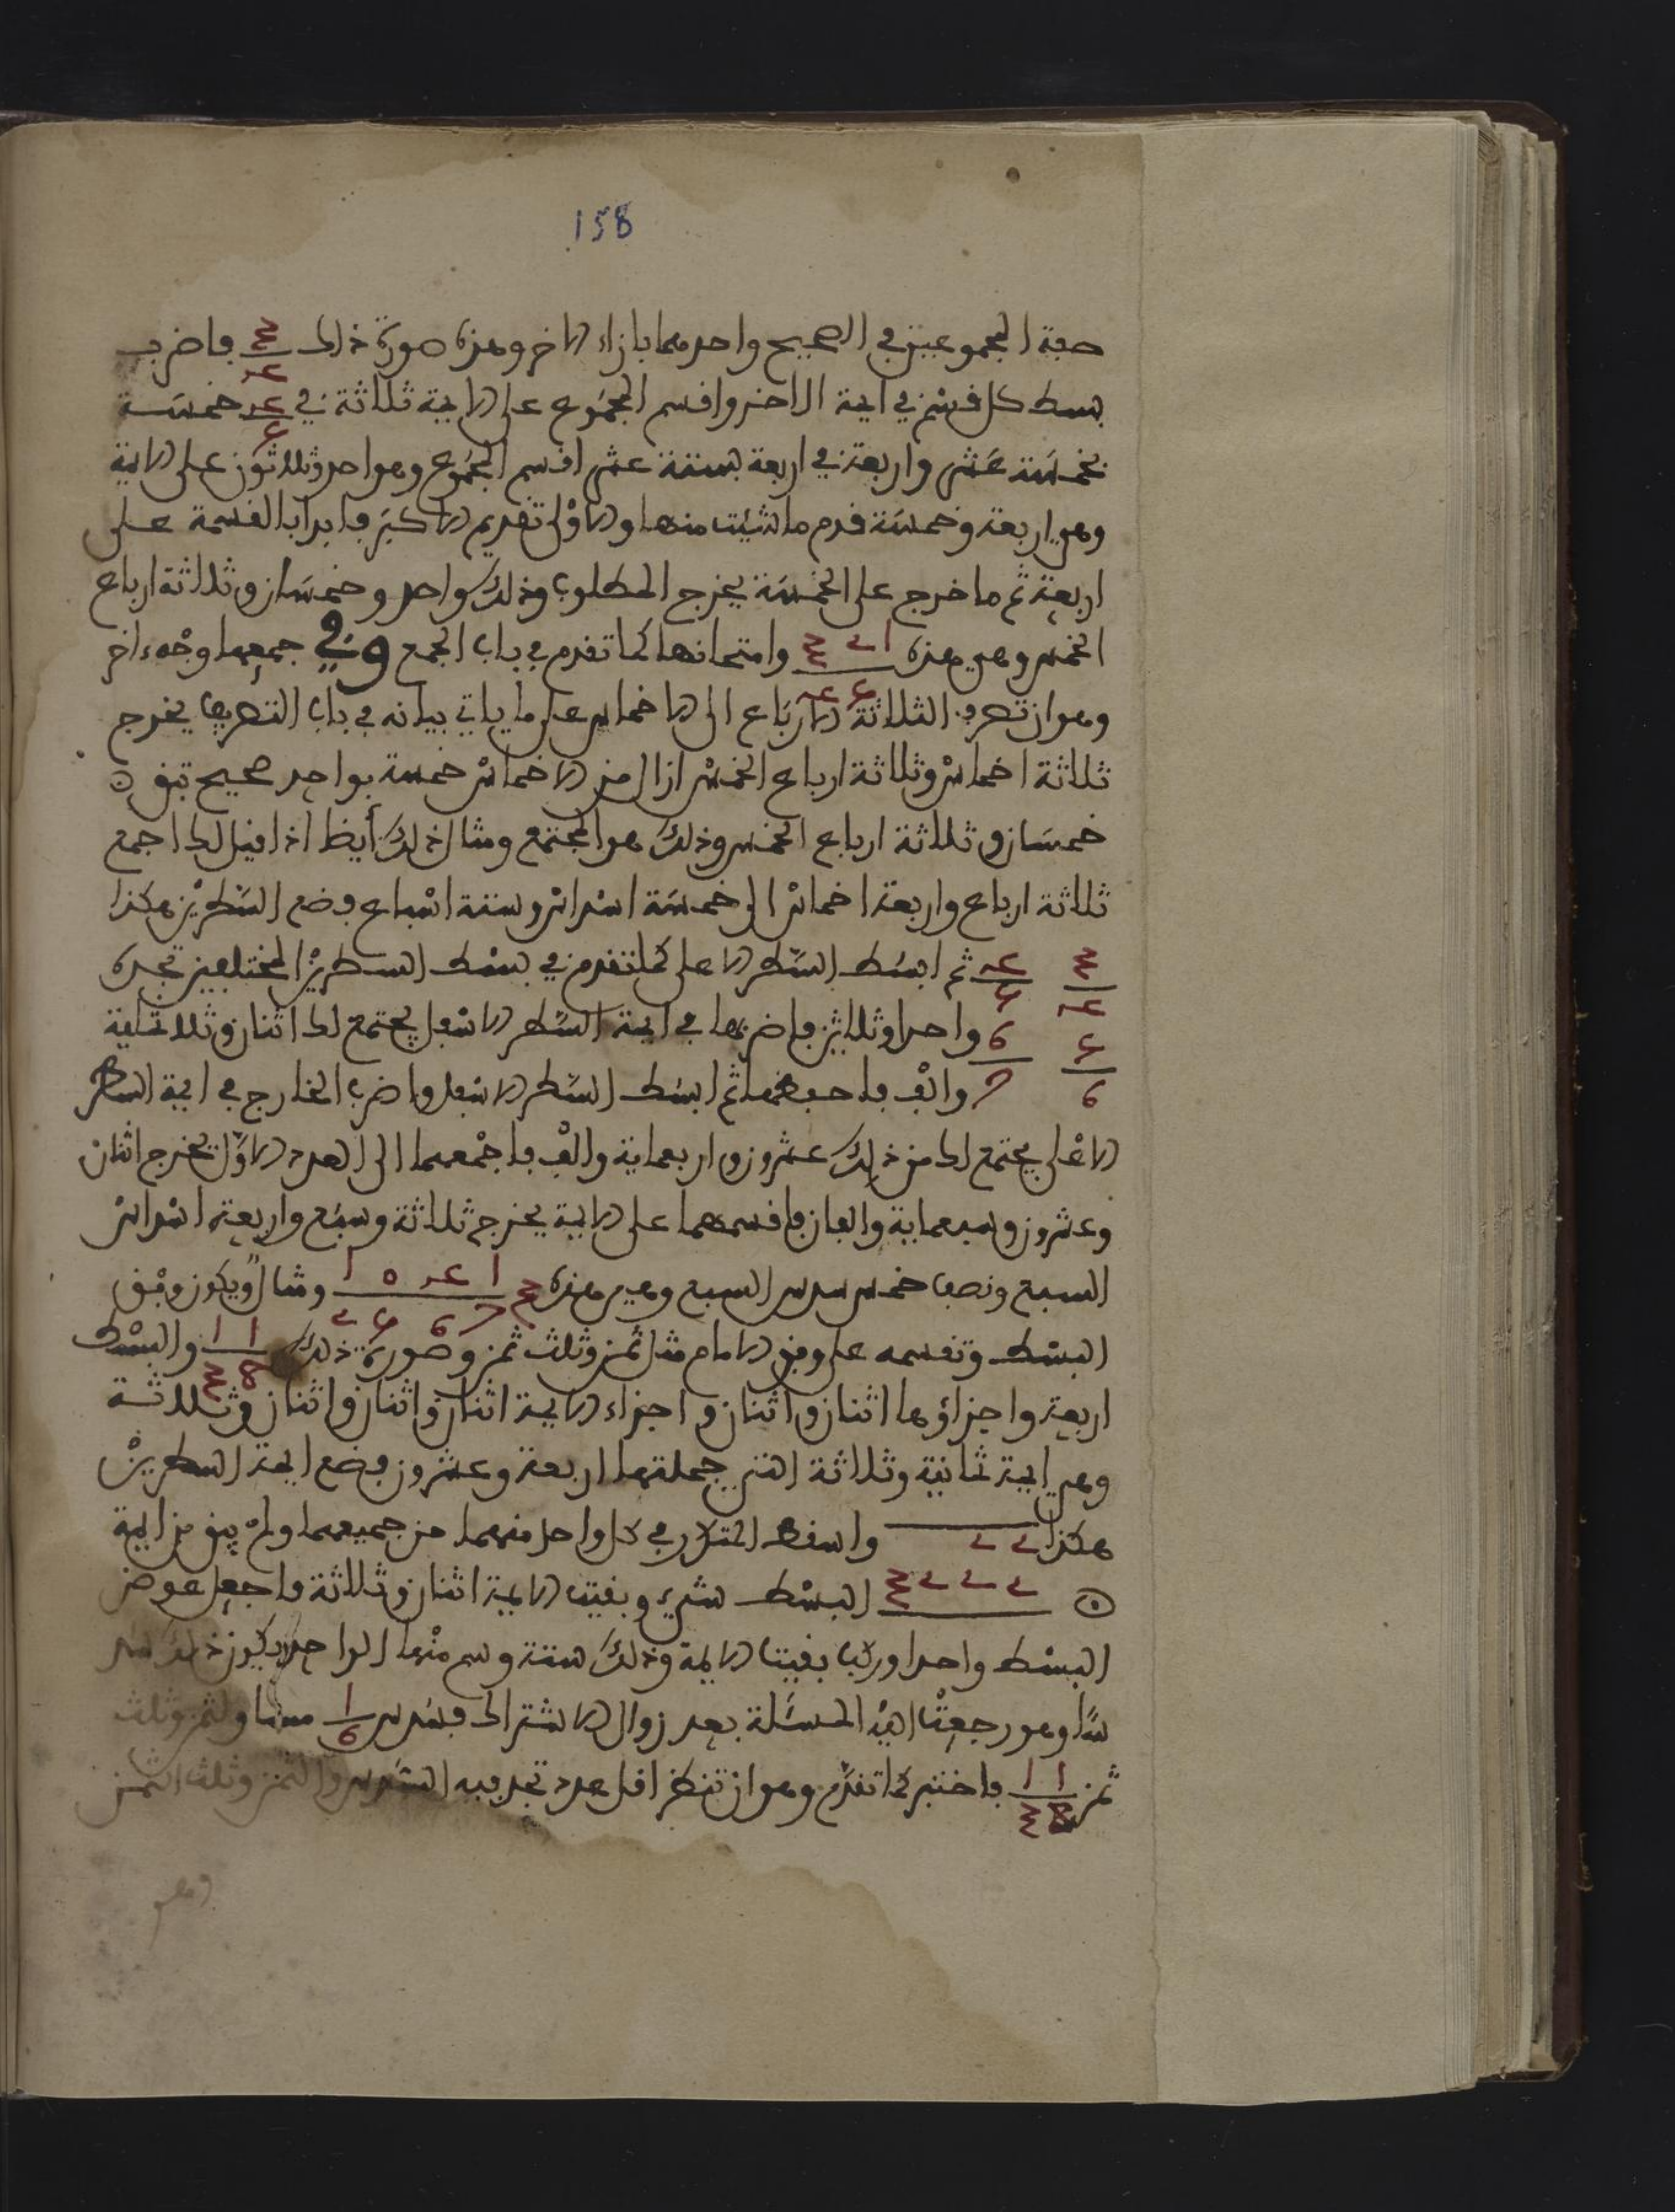 158
صفة المجموعين في الصحيح واحد منهما بازاء الاخر وهذه صورة ذلك ٣/٤ فاضرب
بسط كل قسم في ايمة الاخر واقسم المجموع على الايمة ثلاثة في ٤/٥ خمسة
بخمسة عشر واربعة في اربعة بستة عشر اقسم المجموع وهو احد وثلاثون على الايمة
وهي اربعة وخمسة قدم ما شئت منها والاولى تقديم الاكبر فابدا بالقسمة على
اربعة ثم ما خرج على الخمسة يخرج المطلوب وذلك واحد وخمسان وثلاثة ارباع
الخمس وهي هذه ٣ ٢ ١ / ٤ ٥ وامتحانها كما تقدم في باب الجمع وفي جمعهما وجه ءاخر
وهو ان تصرف الثلاثة الارباع الى الاخماس على ما ياتي بيانه في باب التصريف يخرج
ثلاثة اخماس وثلاثة ارباع الخمس ازال من الاخماس خمسة بواحد صحيح تبق
خمسان وثلاثة ارباع الخمس وذلك هو المجتمع ومثال ذلك أيظا اذا قيل لك اجمع
ثلاثة ارباع واربعة اخماس الى خمسة اسداس وستة اسباع فضع السطرين هكذا
٣/٤ ٤/٥ ثم ابسط السطر الاعلى كما تقدم في بسط السطرين المختلفين تجده
٥/٦ ٦/٧ واحدا وثلاثين فاضربها في ايمة السطر الاسفل يجتمع لك اثنان وثلاثماية
والف فاحفظهما ثم ابسط السطر الاسفل واضرب الخارج في ايمة السطر
الاعلى يجتمع لك من ذلك عشرون واربعماية والف فاجمعهما الى العدد الاول يخرج اثنان
وعشرون وسبعماية والفان فاقسمهما على الايمة يخرج ثلاثة وسبع واربعة اسداس
السبع ونصف خمس سدس السبع وهي هذه ٣ ١ ٠ ٤ ١ / ٢ ٥ ٦ ٧ ومثال ويكون وفق
البسط وتقسمه على وفق الامام مثال ثمن وثلث ثمن وصورة ذلك ١ ١ / ٣ 8 والبسط
اربعة واجزاؤها اثنان واثنان واجزاء الايمة اثنان واثنان واثنان وثلاثة
وهي ايمة ثمانية وثلاثة التي جملتها اربعة وعشرون فضع ايمة السطرين
هكذا ٢ ٢ واسقط المتكرر في كل واحد منهما من جميعهما ولم يبق من ايمة
٢ ٢ ٢ ٣ البسط شيء وبقيت الايمة اثنان وثلاثة فاجعل عوض
البسط واحدا وركب بقيت الايمة وذلك ستة وسم منها الواحد يكون ذلك
سدسا وهو رجعت اليه المسئلة بعد زوال الاشتراك فسدس ١/٦ مساو لثمن وثلث
ثمن ١ ١ / ٣ 8 فاختبر كما تقدم وهو ان تنظر اقل عدد تجد فيه السدس والثمن وثلث الثمن
وهو